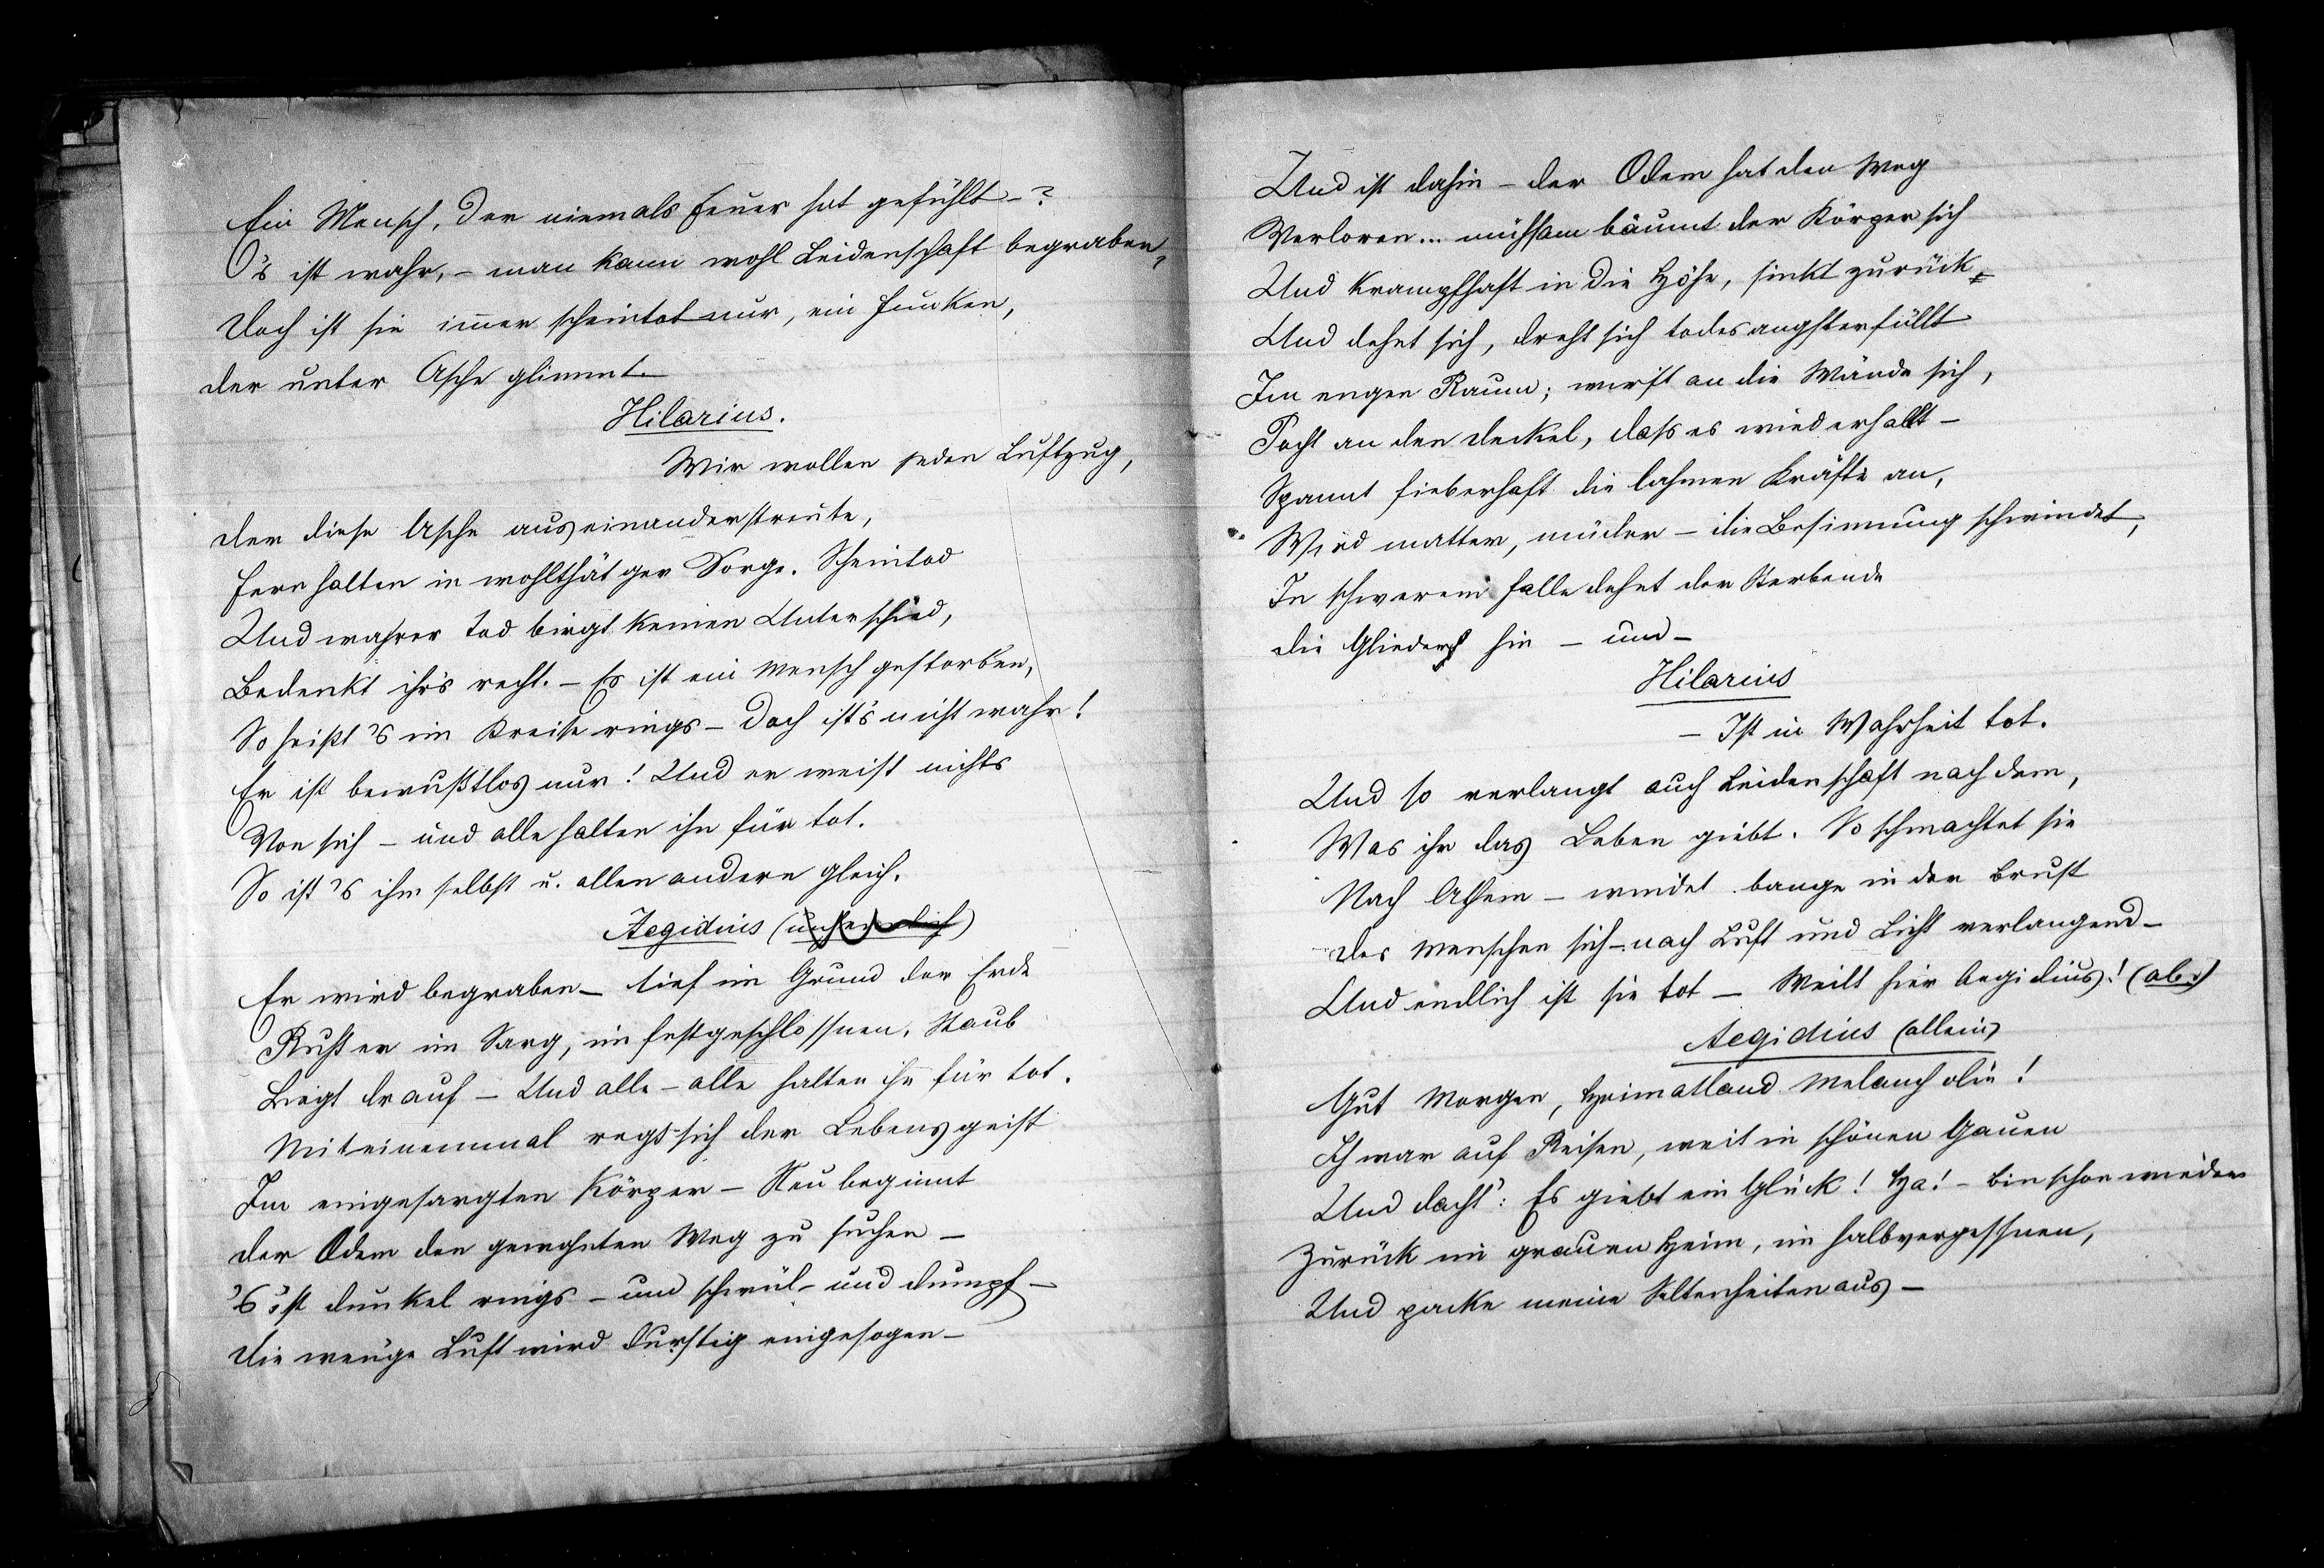 Ein Mensch, der niemals Feuer hat gefühlt –?
O 's ist wahr, – man kann wohl Leidenschaft begraben,
Doch ist sie immer scheintot nur, ein Funken,
Der unter Asche glimmt.
Hilarius.
Wir wollen jeden Luftzug,
Der diese Asche auseinanderstreute,
Fern halten in wohlthätger Sorge. Scheintod
Und wahrer Tod birgt keinen Unterschied,
Bedenkt ihr's recht. – Es ist ein Mensch gestorben,
So heißt 's im Kreise rings – Doch ist's nicht wahr!
Er ist bewußtlos nur! Und er weist nichts
Von sich – und alle halten ihn für tot.
So ist 's ihm selbst u. allen andern gleich.
Aegidius ( )
Er wird begraben – tief im Grund der Erde
Ruht er im Sarg, im festgeschlossnen, Staub
Liegt drauf – Und alle – alle halten ihn für tot.
Miteinemmal regt sich der Lebensgeist
Im eingesargten Körper – Neu beginnt
Der Odem den gewohnten Weg zu suchen –
's ist dunkel rings – und schwül – und dumpf –
Die wen'ge Luft wird durstig eingesogen –
Und ist dahin – der Odem hat den Weg
Verloren... mühsam bäumt der Körper sich
Und krampfhaft in die Höhe, sinkt zurück,
Und dehnt sich, dreht sich todesangsterfüllt
Im engen Raum; wirft an die Wände sich,
Pocht an den Deckel, dass es wiederhallt –
Spannt fieberhaft die lahmen Kräfte an,
Wird matter, müder – die Besinnung schwindet,
In schwerem Falle dehnt der Sterbende
Die Glieder hin – und –
Hilarius
– Ist in Wahrheit tot.
Und so verlangt auch Leidenschaft nach dem,
Was ihr das Leben giebt. So schmachtet sie
Nach Athem – windet bange in der Brust
Des Menschen sich – nach Luft und Licht verlangend –
Und endlich ist sie tot – Weilt hier Aegidius! (ab.)
Aegidius (allein)
Gut Morgen, Heimatland Melancholie!
Ich war auf Reisen, weit in schönen Gauen
Und dacht': Es giebt ein Glück! Ha! – bin schon wieder
Zurück im grauen Heim, im halbvergessnen,
Und packe meine Seltenheiten aus –